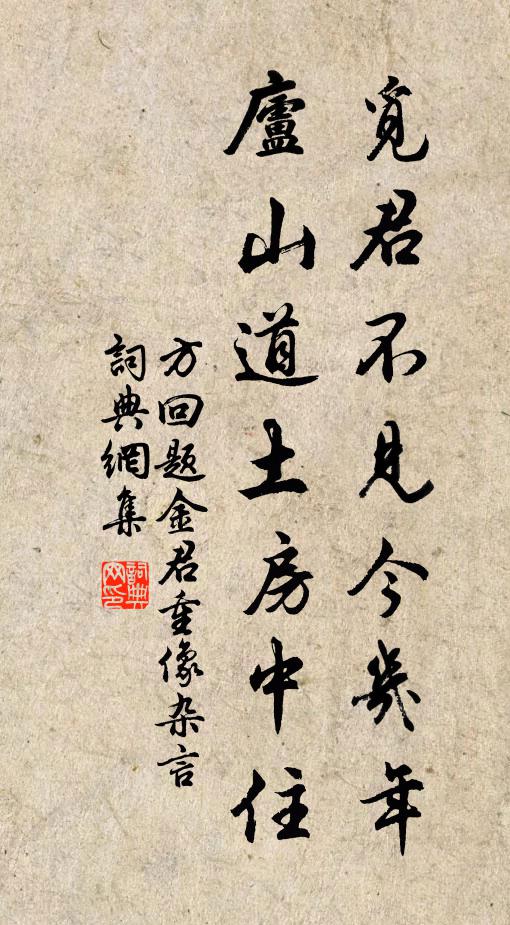 覓君不見今幾年
廬山道士房中住
方回题金君重像杂言
詞典網集
詞典
网印